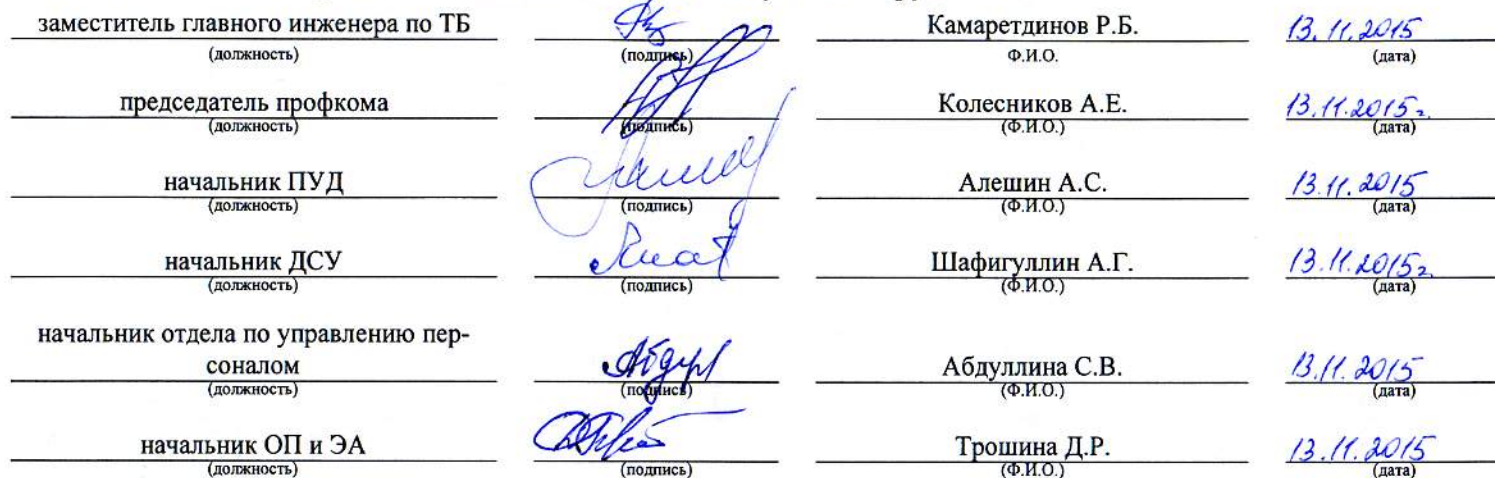 заместитель главного инженера по ТБ Камаретдинов Р.Б. 13.11.2015
(должность) (подпись) Ф.И.О. (дата)
председатель профкома Колесников А.Е. 13.11.2015г.
(должность) (подпись) (Ф.И.О.) (дата)
начальник ПУД Алешин А.С. 13.11.2015
(должность) (подпись) (Ф.И.О.) (дата)
начальник ДСУ Шафигуллин А.Г. 13.11.2015г.
(должность) (подпись) (Ф.И.О.) (дата)
начальник отдела по управлению пер-
соналом Абдуллина С.В. 13.11.2015
(должность) (подпись) (Ф.И.О.) (дата)
начальник ОП и ЭА Трошина Д.Р. 13.11.2015
(должность) (подпись) (Ф.И.О.) (дата)